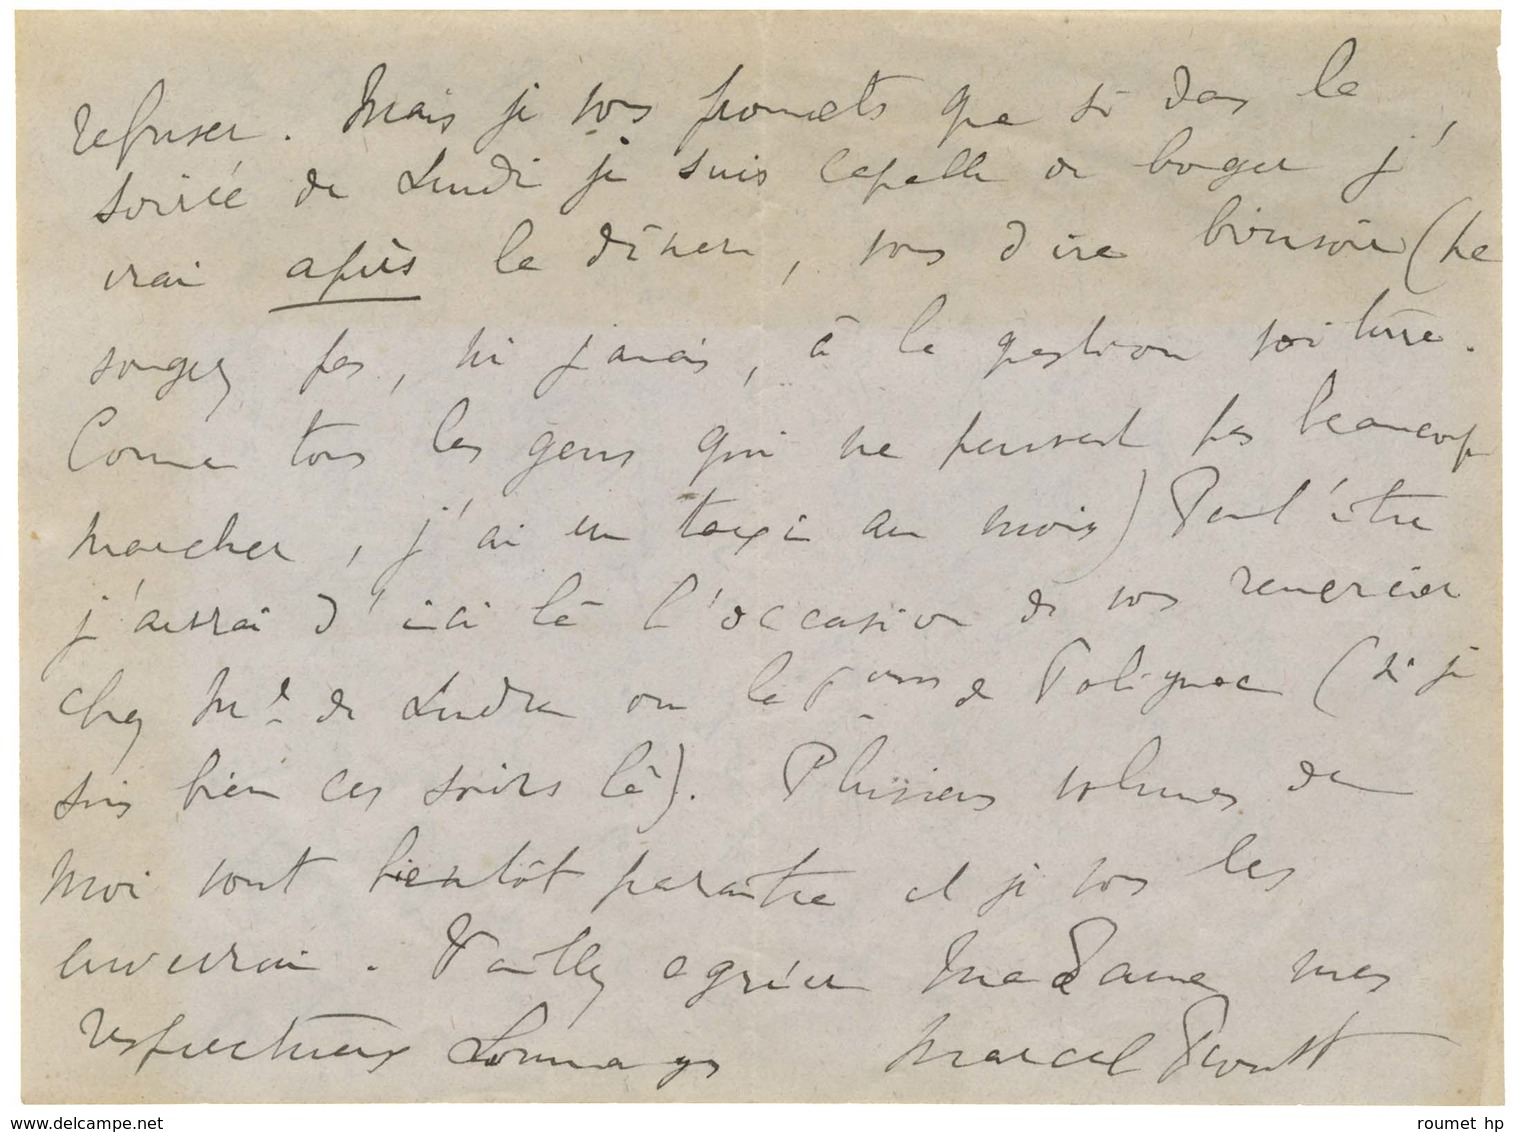 refuser. Mais je vous promets que si dans la
soirée de Lundi je suis capable de bouger j'
irai après le dîner, vous dire bonsoir (ne
songez pas, ni jamais, à la question voiture.
Comme tous les gens qui ne peuvent pas beaucoup
marcher, j'ai un taxi au mois) Peut'être
j'aurai d'ici là l'occasion de vous remercier
chez Me de Ludre ou la Pcesse de Polignac (si je
suis bien ces soirs là). Plusieurs volumes de
moi vont bientôt paraître et je vous les
enverrai. Veuillez agréer Madame mes
respectueux hommages Marcel Proust
www.delcampe.net roumet hp